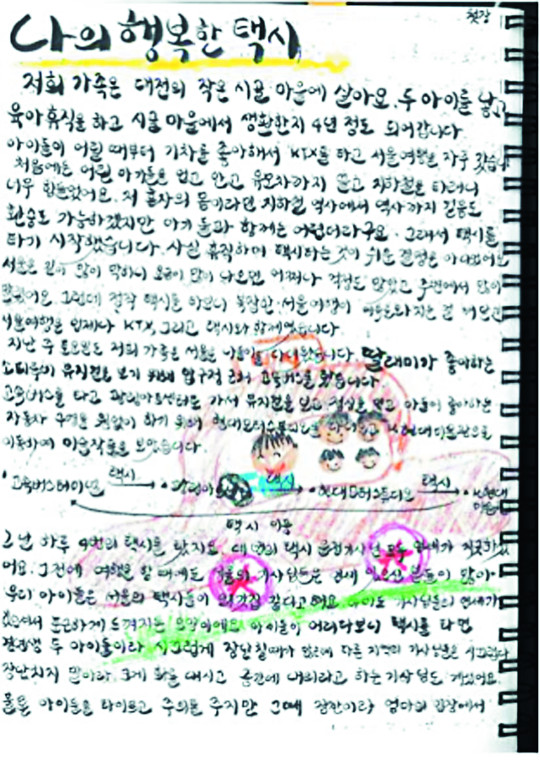 첫장
나의 행복한 택시
저희 가족은 대전의 작은 시골 마을에 살아요. 두 아이를 낳고
육아휴직을 하고 시골 마을에서 생활한지 4년 정도 되어갑니다.
아이들이 어릴 때부터 기차를 좋아해서 KTX를 타고 서울여행을 자주 갔습니다
처음에는 어린 아기들을 업고 안고 유모차까지 끌고 지하철을 타려니
너무 힘들었어요. 저 혼자의 몸이라면 지하철 역사에서 역사까지 길음도
환승도 가능하겠지만 아기들과 함께는 어렵더라구요. 그래서 택시를
타기 시작했습니다. 사실 휴직하며 택시타는 것이 쉬운 결정은 아니었어요
서울은 길이 많이 막히니 요금이 많이 나오면 어쩌나 걱정도 많았고 주변에서 많이
말렸어요. 그런데 정작 택시를 타보니 복잡한 서울여행이
서울여행은 언제나 KTX, 그리고 택시와 함께였습니다.
지난 주 토요일도 저희 가족은 서울로 나들이를 다녀왔습니다. 딸래미가 좋아하는
뮤지컬을 보기 위해 압구정 고속버스를 탔습니다
고속버스를 타고 가서 뮤지컬을 보고 점심을 먹고 아들이 좋아하는
자동차 구경을 하기 위해 현대모터스튜디오를
이동하여 미술작품을 보았습니다.
• 고속버스터미널 택시→ • 광림아트 택시→ • 현대모터스튜디오 택시→ •
택시 이용
그 날 하루 4번의 택시를 탔지요. 네 번의 택시 운전기사님 모두 연세가 지긋하셨
어요. 그전에 여행을 할 때에도 서울의 기사님들은 연세 있으신 분들이 많아
우리 아이들은 서울의 택시들이
푸근하게 느껴지는 모양이에요. 아이들이 어리다보니 택시를 타면
두 아이들이라 시끄럽게 장난칠때가 많은데 다른 지역의 기사님들은 시끄럽다
장난치지 말아라, 크게 화를 내시고 중간에 내리라고 하는 기사님도 계셨어요.
물론 아이들을 타이르고 주의를 주지만 그때 잠깐이라 엄마의 입장에서